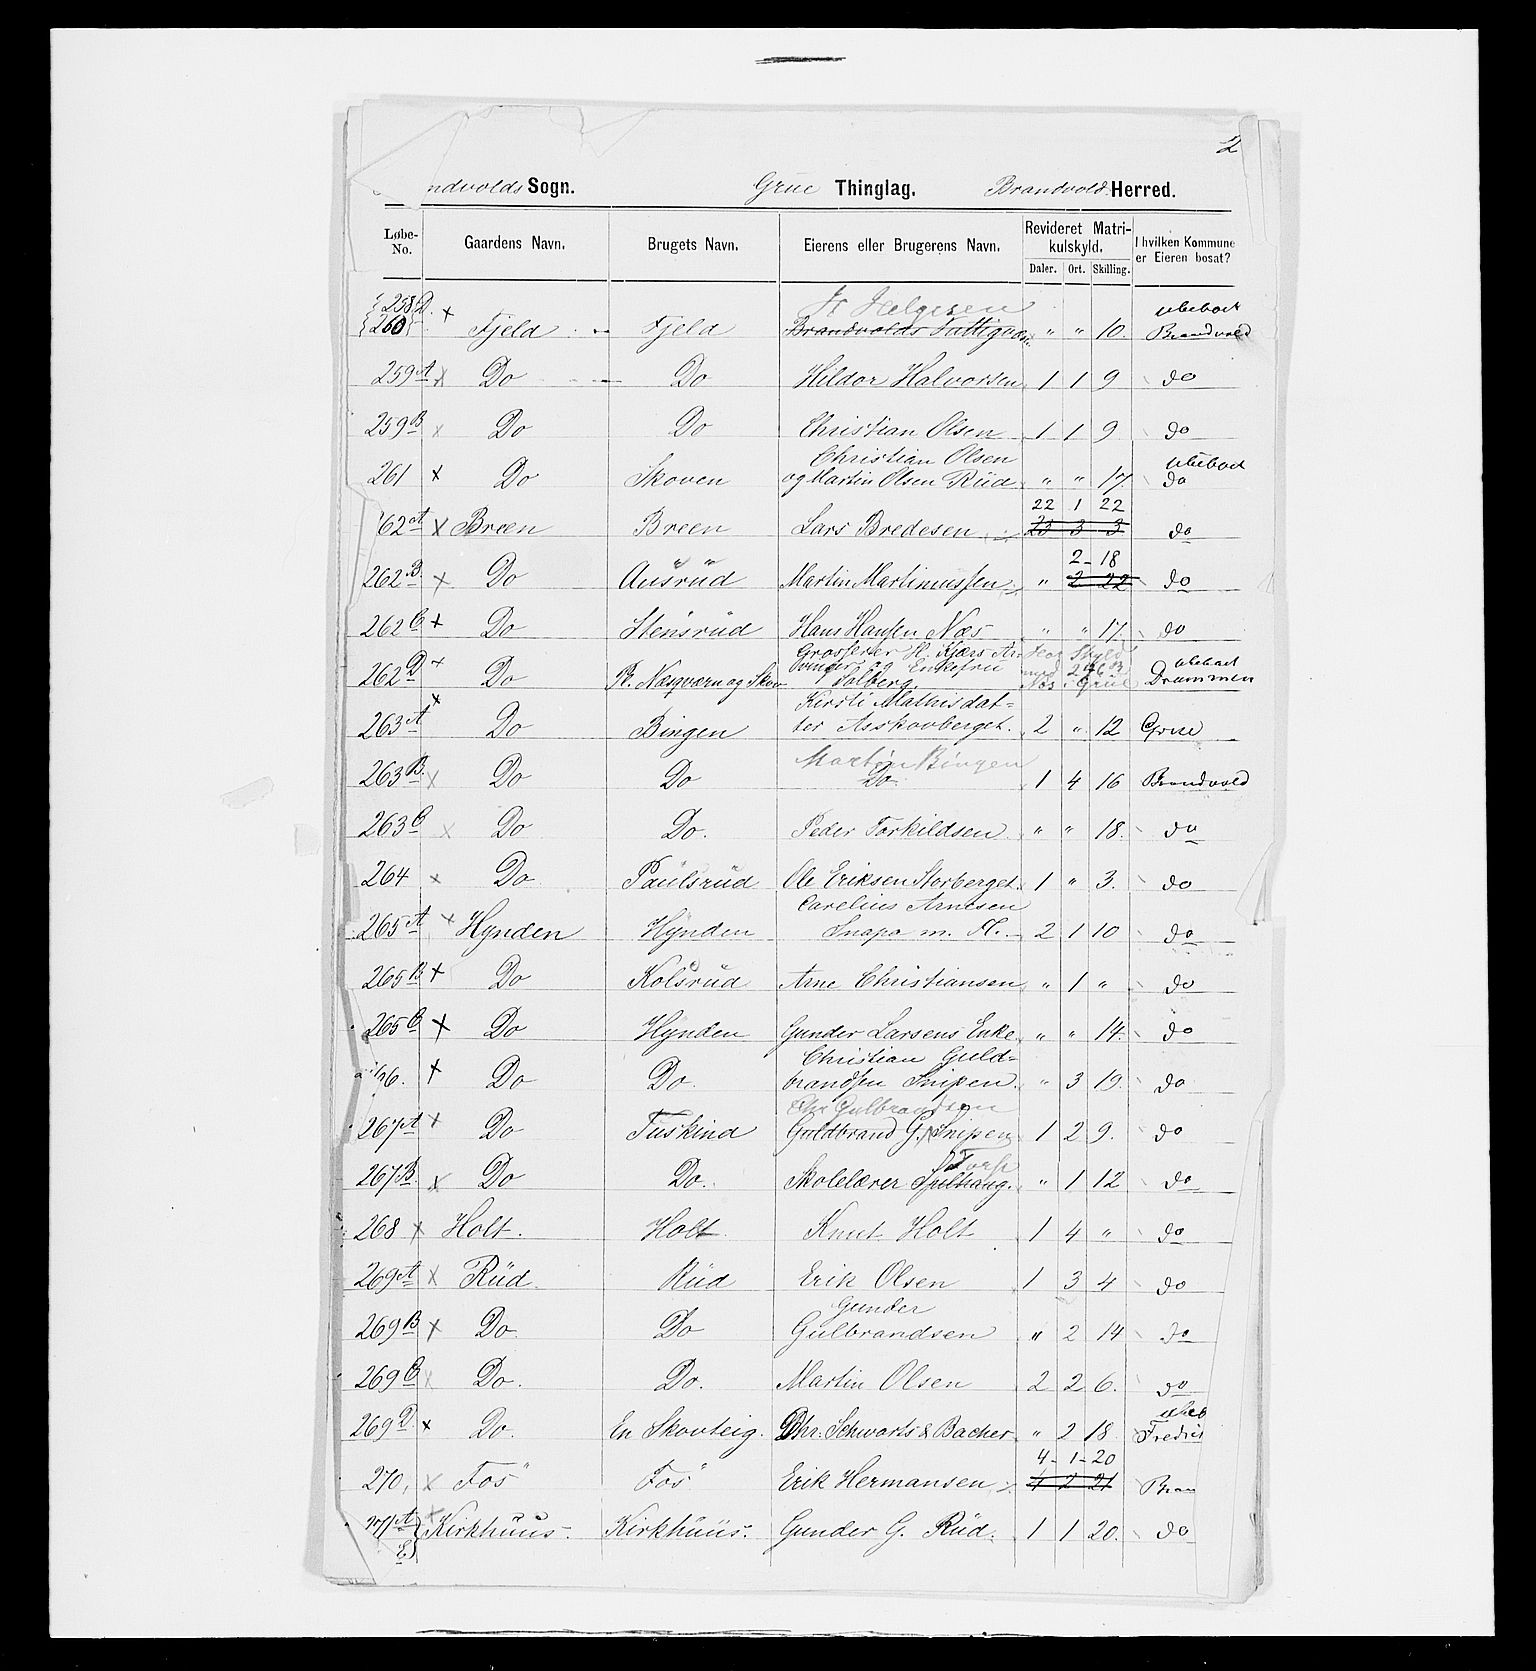 2
ndvolds Sogn. Grue Thinglag. Brandvold Herred.
Løbe-No. Gaardens Navn. Brugets Navn. Eierens eller Brugerens Navn. Revideret Matrikulskyld. I hvilken Kommune er Eieren bosat?
Daler. Ort. Skilling.
H Helgesen ubeboet
258 D. 260 x Fjeld Fjeld Brandvolds Fattigvæs. " " 10. Brandvold
259 A x Do Do Hildor Halvorsen 1 1 9 do
259 B x Do Do Christian Olsen 1 1 9 do
Christian Olsen ubeboet
261 x Do Skoven og Martin Olsen Rüd " " 17 do
22 1 22
62 A x Breen Breen Lars Bredesen 23 3 3 do
2 - 18
262 B. x Do Ausrüd Martin Martinussen " 2 22 do
262 C x Do Stensrüd Hans Hansen Næs " " 17 do
Grosserer H. Kjærs Ar- Har Skyld ubeboet
262 D x Do P. Næsqværn og Skov vinger og Enkefru Solberg Næs i Grue Drammen
Kirsti Mathisdat=
263 A x Do Bingen ter Asskovberget. 2 " 12 Grue
Martin Bingen
263 B. x Do Do Do. 1 4 16 Brandvold
263 C x Do Do. Peder Torkildsen " " 18. do
264 x Do Paulsrüd Ole Eriksen Storberget. 1 " 3. do
Carelius Arnesen
265 A x Hynden Hynden Snapa m. Fl. 2 1 10 do
265 B x Do Kolsrüd Arne Christiansen " 1 " do
265 C x Do Hynden Gunder Larsens Enke " " 14. do
Christian Guld=
26. x Do Do. brandsen Snipen. " 3 19. do
Chr Gulbrandsen
267 A x Do Tuskind Guldbrand G. Snipen 1 2 9. do
Torp
267 B. x Do Do. Skolelærer Spithaug. " 1 12 do
268 x Holt. Holt Knut Holt 1 4 " do
269 A x Rüd. Rüd Erik Olsen 1 3 4 do
Gunder
269 B x Do. Do Gulbrandsen " 2 14 do
269 C x Do. Do. Martin Olsen 2 2 6. do
ubeb
269 D. x Do. En Skovteig. Chr. Schwartz & Bacher " 2 18 Fredri
4 - 1 - 20
270, x Fos Fos Erik Hermansen 4 2 21 Bran
271 A E x Kirkhuus. Kirkhüüs. Gunder G. Rüd. 1 1 20. do